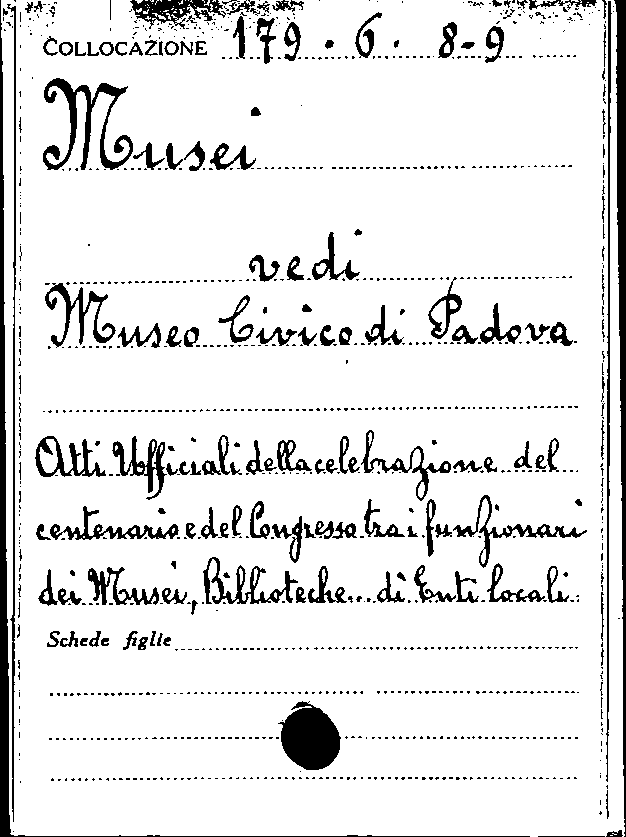 COLLOCAZIONE 179 · 6 · 8-9
Musei
vedi
Museo Civico di Padova
Atti Ufficiali della celebrazione del
centenario e del Congresso tra i funzionari
dei Musei, Biblioteche... di Enti locali
Schede figlie